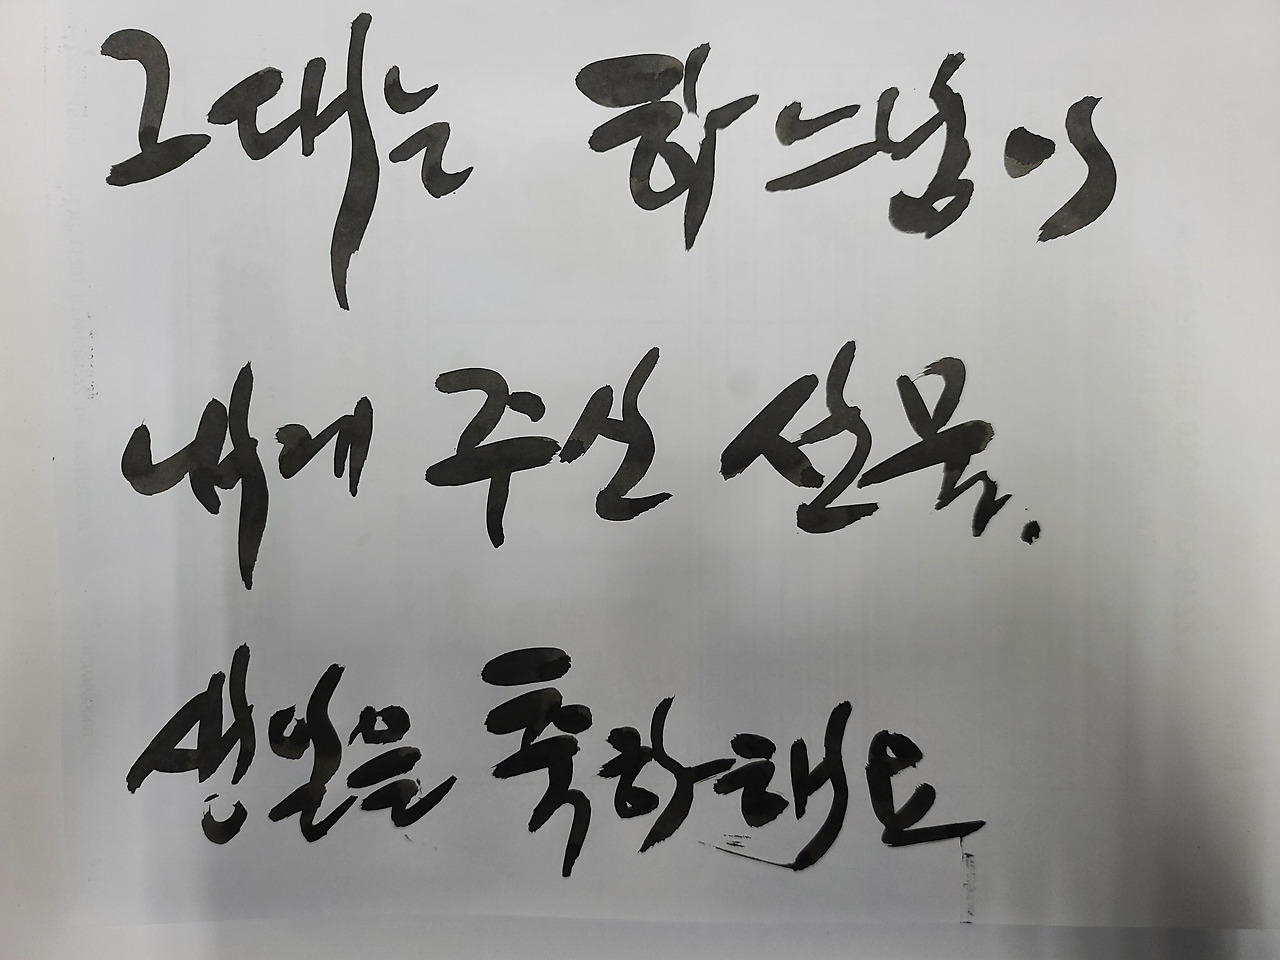 그대는 하느님이
내게 주신 선물.
생일을 축하해요